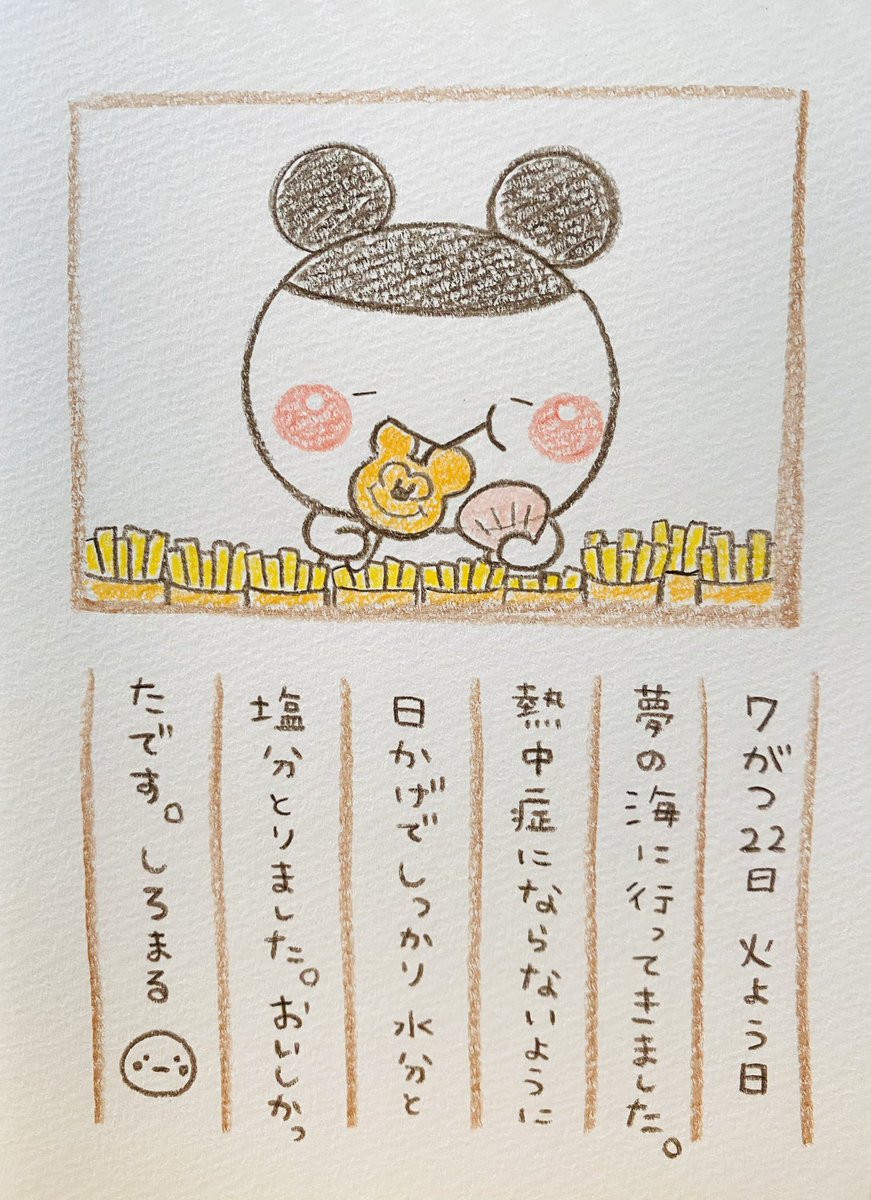 7がつ22日 火よう日
夢の海に行ってきました。
熱中症にならないように
日かげでしっかり水分と
塩分とりました。おいしかっ
たです。しろまる